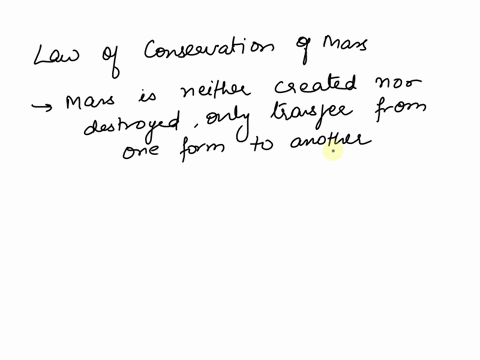 Law of Conservation of Mass
→ Mass is neither created nor
destroyed, only transfer from
one form to another